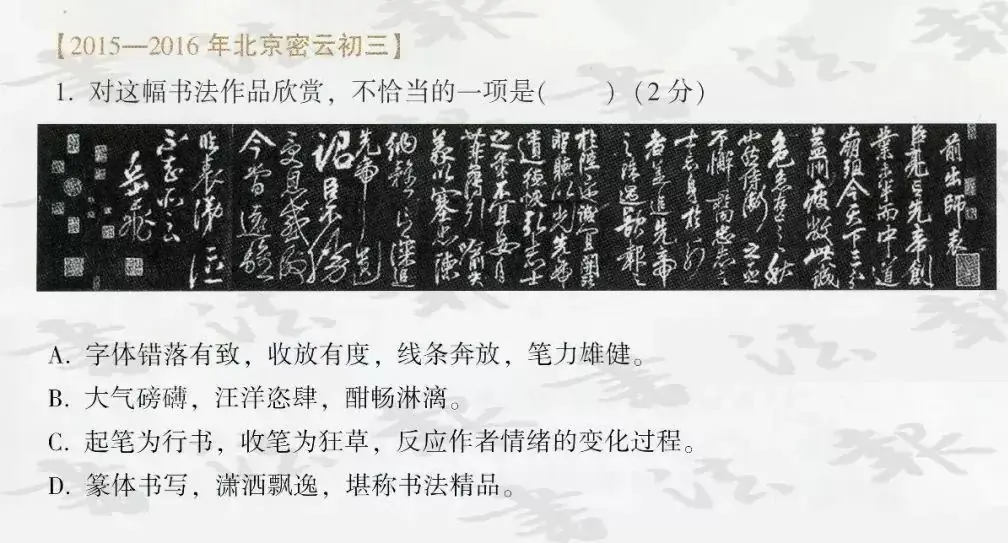 【2015—2016 年北京密云初三】
1. 对这幅书法作品欣赏，不恰当的一项是(　　)（2 分）
前出師表
臣亮言先帝創
業未半而中道
崩殂今天下三分
益州疲敝此誠
危急存亡之秋
也然侍衛之臣
不懈於內忠志之
士忘身於外
者蓋追先帝
之殊遇欲報之
於陛下也誠宜開張
聖聽以光先帝
遺德恢弘志士
之氣不宜妄自
菲薄引喻失
義以塞忠諫
納雅言深追
先帝遺
詔臣不勝
受恩感激
今當遠離
臨表涕泣
不知所云
岳飛
A. 字体错落有致，收放有度，线条奔放，笔力雄健。
B. 大气磅礴，汪洋恣肆，酣畅淋漓。
C. 起笔为行书，收笔为狂草，反应作者情绪的变化过程。
D. 篆体书写，潇洒飘逸，堪称书法精品。